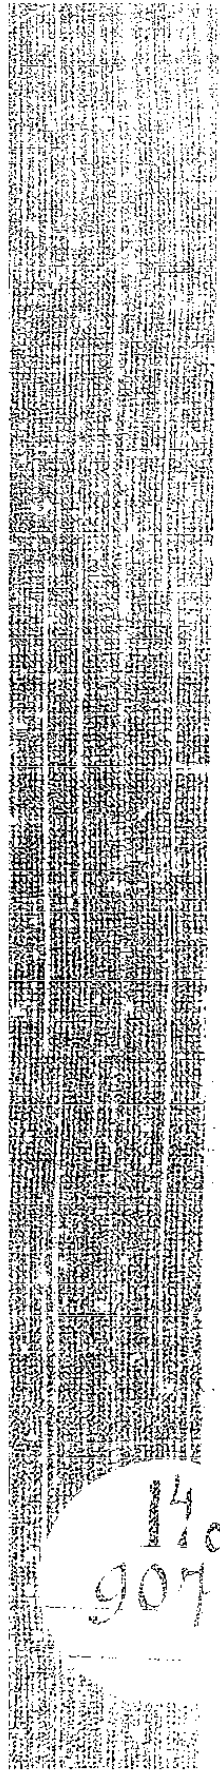 14
907